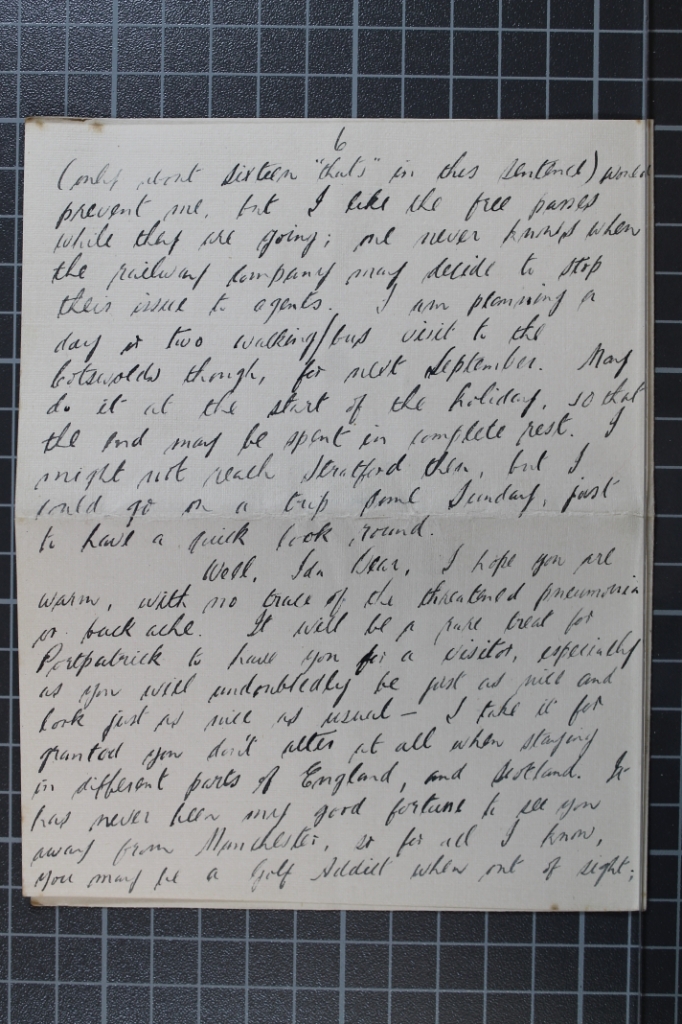 6
(only about sixteen "thats" in this sentence) would
prevent me, but I like the free passes
while they are going; one never knows when
the railway company may decide to stop
their issue to agents. I am planning a
day or two walking/bus visit to the
Cotswolds though, for next September. May
do it at the start of the holiday, so that
the end may be spent in complete rest. I
might not reach Stratford then, but I
could go on a trip some Sunday, just
to have a quick look round.
Well, Ida Dear, I hope you are
warm, with no trace of the threatened pneumonia
or back ache. It will be a rare treat for
Portpatrick to have you for a visitor, especially
as you will undoubtedly be just as nice and
look just as nice as usual — I take it for
granted you don't alter at all when staying
in different parts of England, and Scotland. It
has never been my good fortune to see you
away from Manchester, so for all I know,
you may be a Golf Addict when out of sight;